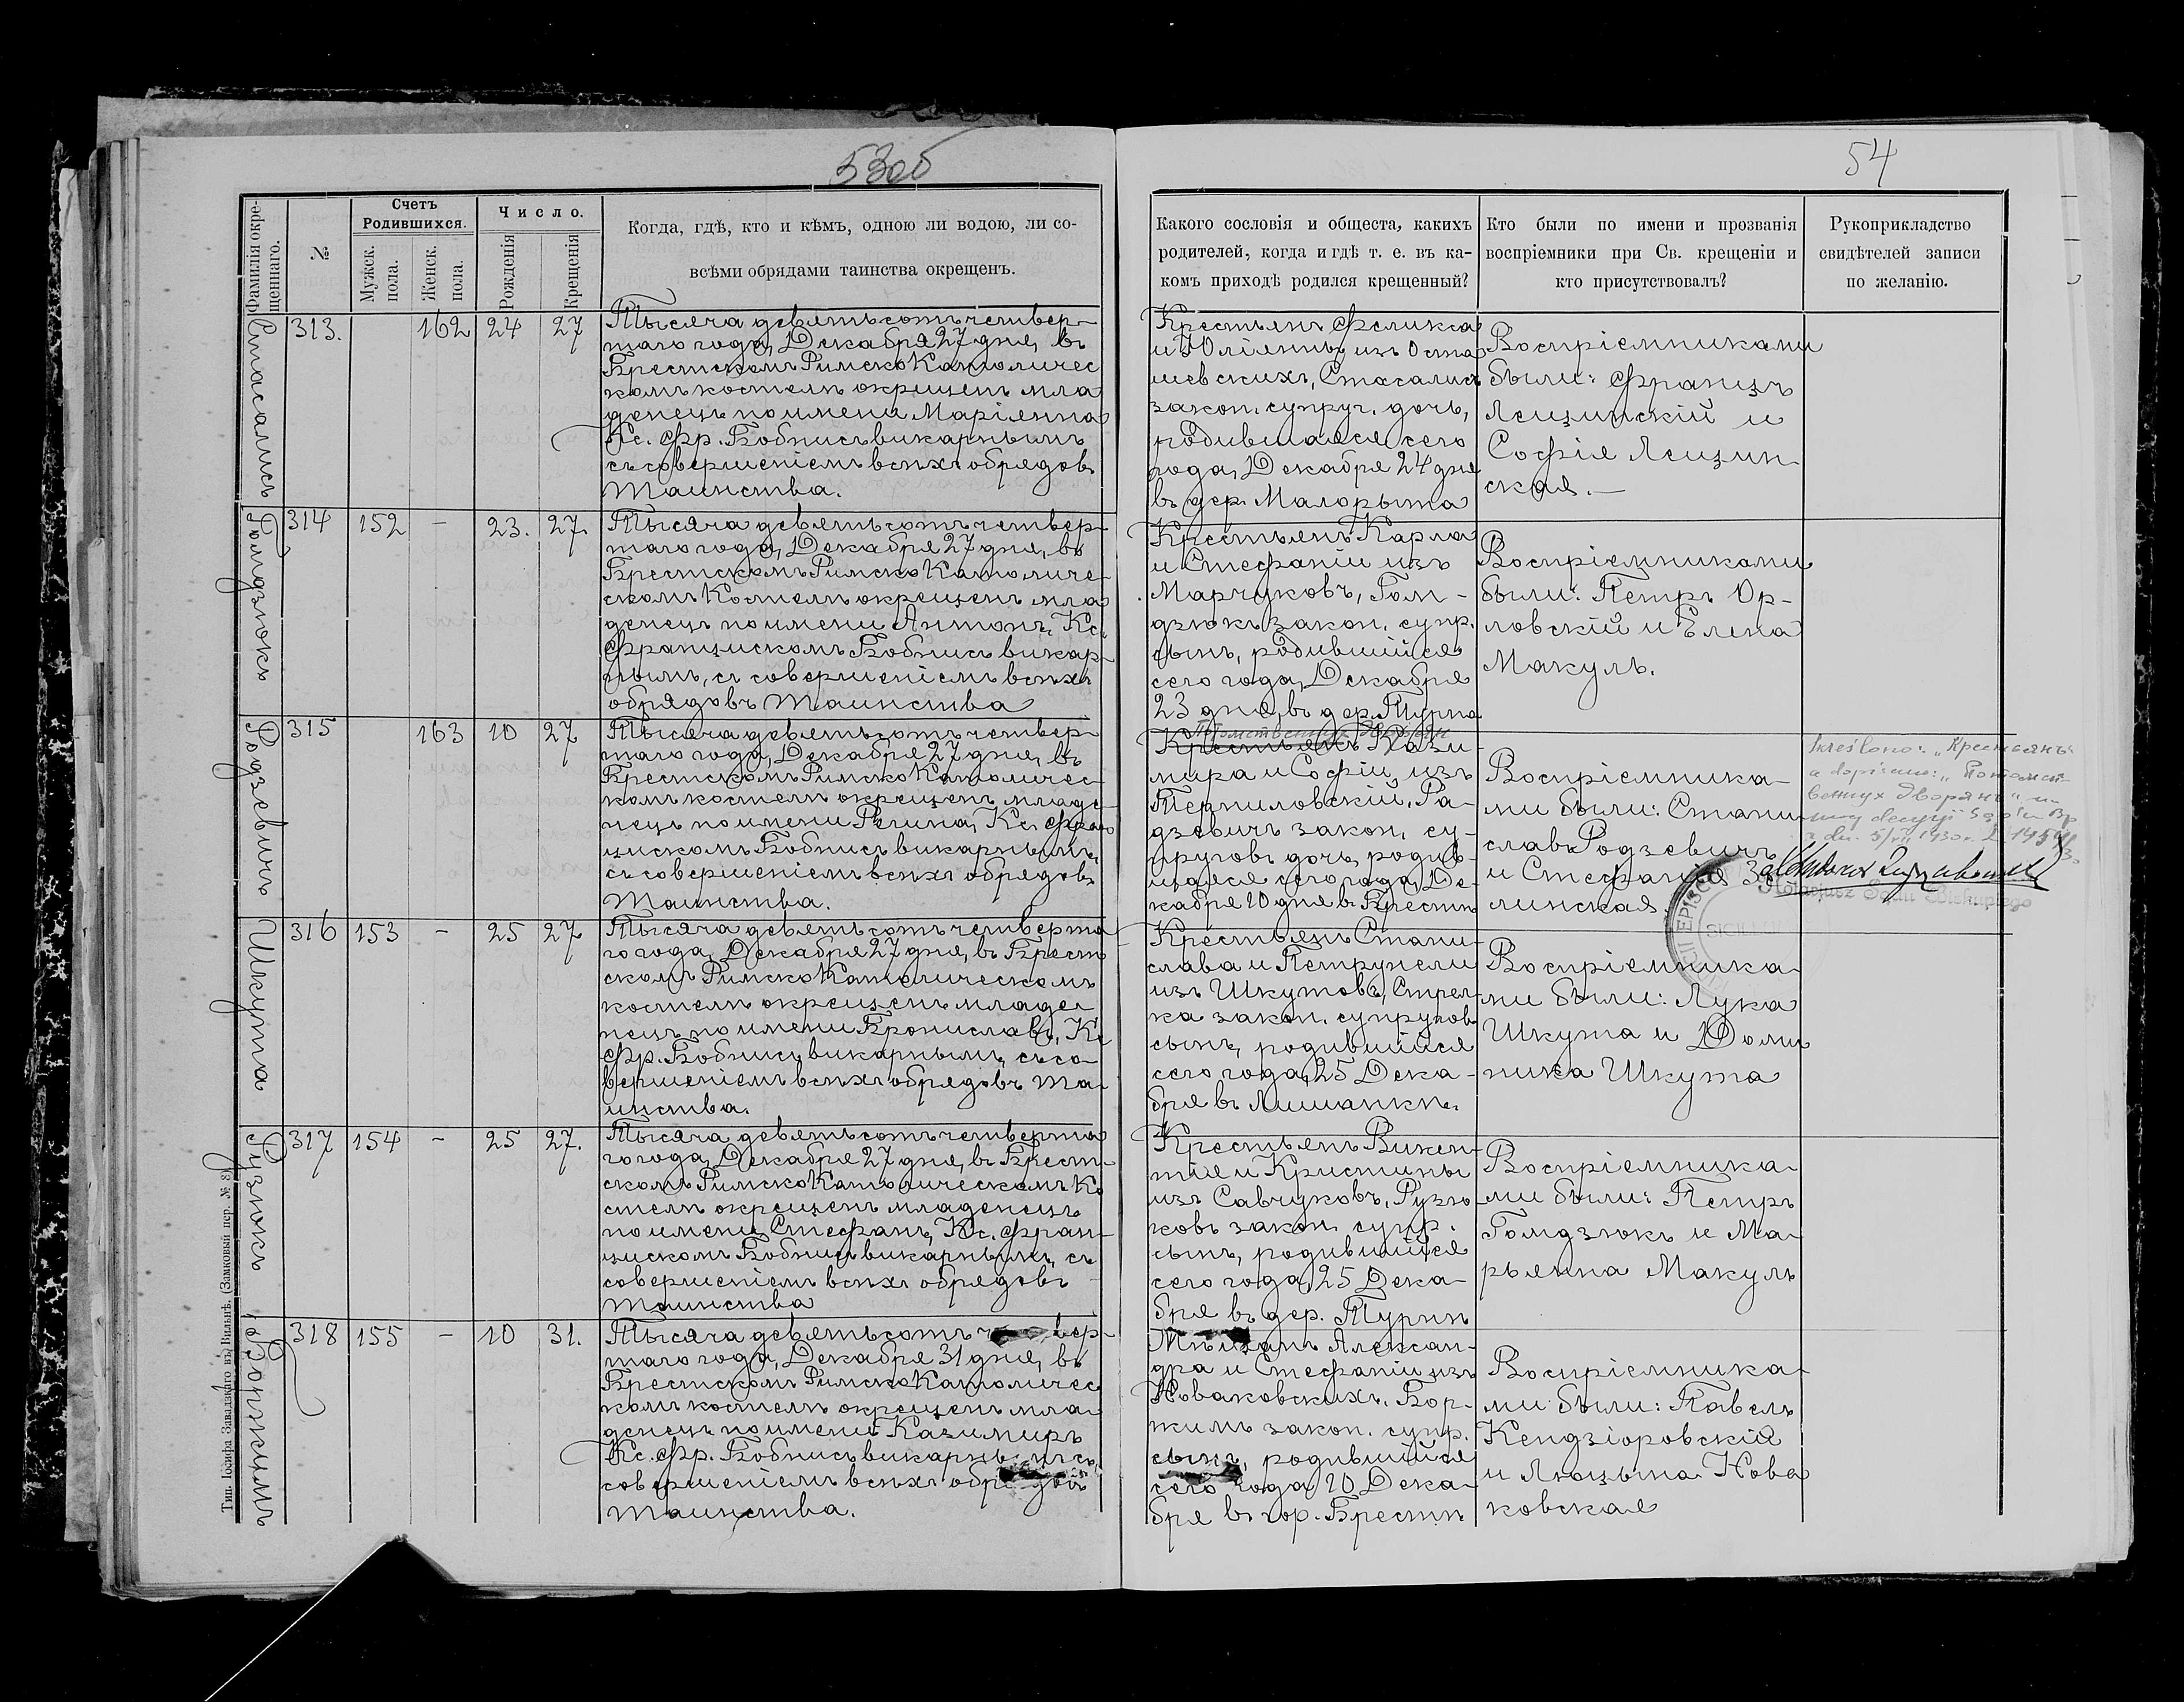 53об
54
Фамилія окре-
щеннаго.
№
Счетъ
Родившихся.
Мужск.
пола.
Женск.
пола.
Число.
Рожденія
Крещенія
Когда, гдѣ, кто и кѣмъ, одною ли водою, ли со-
всѣми обрядами таинства окрещенъ.
Какого сословія и общеста, какихъ
родителей, когда и гдѣ т. е. въ ка-
комъ приходѣ родился крещенный?
Кто были по имени и прозванія
воспріемники при Св. крещеніи и
кто присутствовалъ?
Рукоприкладство
свидѣтелей записи
по желанію.
313.
162
24
27
Тысяча девятьсотъ четвер-
таго года, Декабря 27 дня, въ
Брестскомъ Римско Католичес
комъ костелѣ окрещенъ мла
денецъ по имени Маріянна
Кс. Фр. Бобнисъ викарнымъ
съ совершеніемъ всѣхъ обрядовъ
Таинства.
Крестьянъ Феликса
и Юліянны изъ Оста
шевскихъ,
закон. супруг. дочь,
родившаяся сего
года, Декабря 24 дня
въ дер. Малорыта
Воспріемниками
были: Францъ
Лещинскій и
Софія Лещин
ская.—
Гомдзюкъ
314
152
-
23.
27.
Тысяча девятьсотъ четвер-
таго года, Декабря 27 дня, въ
Брестскомъ Римско Католиче-
скомъ Костелѣ окрещенъ мла
денецъ по имени Антонъ, Кс.
Францискомъ Бобнисъ викар-
нымъ, съ совершеніемъ всѣхъ
обрядовъ Таинства
Крестьянъ Карла
и Стефаніи изъ
Марчуковъ, Гом-
дзюкъ закон. супр.
сынъ, родившійся
сего года, Декабря
23 дня, въ дер. Турна
Воспріемниками
были: Петръ Ор-
ловскій и Елена
Макуль.
Родзевичъ
315
163
10
27
Тысяча девятьсотъ четвер-
таго года, Декабря 27 дня, въ
Брестскомъ Римско Католичес-
комъ костелѣ окрещенъ младе-
нецъ по имени Регина, Кс. Фран
цискомъ Бобнисъ викарнымъ,
съ совершеніемъ всѣхъ обрядовъ
Таинства.
Потомственныхъ Дворянъ
Крестьянъ Кази-
мира и Софіи изъ
Терпиловскій, Ра-
дзевичъ закон. су-
пруговъ дочь, родив-
шаяся сего года, Де-
кабря 10 дня въ Брестѣ
Воспріемника-
ми были: Стани-
славъ Родзевичъ
и Стефанія За
линская.
kreślono: „Крестьянъ"
a dopisano: „Потомст-
венных дворянъ"
Notarjusz Sądu Biskupiego
Шкута
316
153
-
25
27
Тысяча девятьсотъ четверта
го года, Декабря 27 дня, въ Брест
скомъ Римско Католическомъ
костелѣ окрещенъ младе
нецъ по имени Брониславъ, Кс
Фр. Бобнисъ викарнымъ, съ со-
вершеніемъ всѣхъ обрядовъ Та-
инства.
Крестьянъ Стани-
слава и Петрунели
изъ Шкутовъ, Стрел-
ка закон. супруговъ
сынъ, родившійся
сего года, 25 Дека-
бря въ Лишанкѣ.
Воспріемника-
ми были: Лука
Шкута и Доми
ника Шкута
Рузюкъ
317
154
-
25
27.
Тысяча девятьсотъ четверта
го года, Декабря 27 дня, въ Брест-
скомъ Римско Католическомъ Ко
стелѣ окрещенъ младенецъ
по имени Стефанъ, Кс. Фран-
цискомъ Бобнисъ викарнымъ, съ
совершеніемъ всѣхъ обрядовъ
Таинства
Крестьянъ Викен-
тія и Кристины
изъ Савчуковъ, Рузю
ковъ закон. супр.
сынъ, родившійся
сего года, 25 Дека-
бря въ дер. Турнѣ
Воспріемника-
ми были: Петръ
Гомдзюкъ и Ма-
рьянна Макуль
Боржимъ
318
155
-
10
31.
Тысяча девятьсотъ четвер-
таго года, Декабря 31 дня, въ
Брестскомъ Римско Католичес
комъ костелѣ окрещенъ мла-
денецъ по имени Казимиръ
Кс. Фр. Бобнисъ викарнымъ съ
совершеніемъ всѣхъ обрядовъ
Таинства.
Мѣщанъ Алексан-
дра и Стефаніи изъ
Новаковскихъ, Бор-
жимъ закон. супр.
сынъ, родившійся
сего года, 10 Дека-
бря въ гор. Брестѣ
Воспріемника-
ми были: Павелъ
Кендзіоровскій
и Люцына Нова
ковская
Тип. Іосифа Завадзкаго въ Вильнѣ. (Замковый пер. № 8)